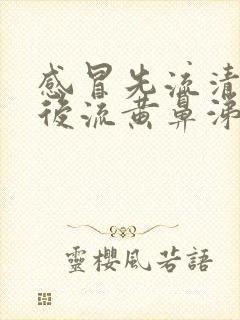 感冒先流清
後流黄鼻涕
靈櫻風若語